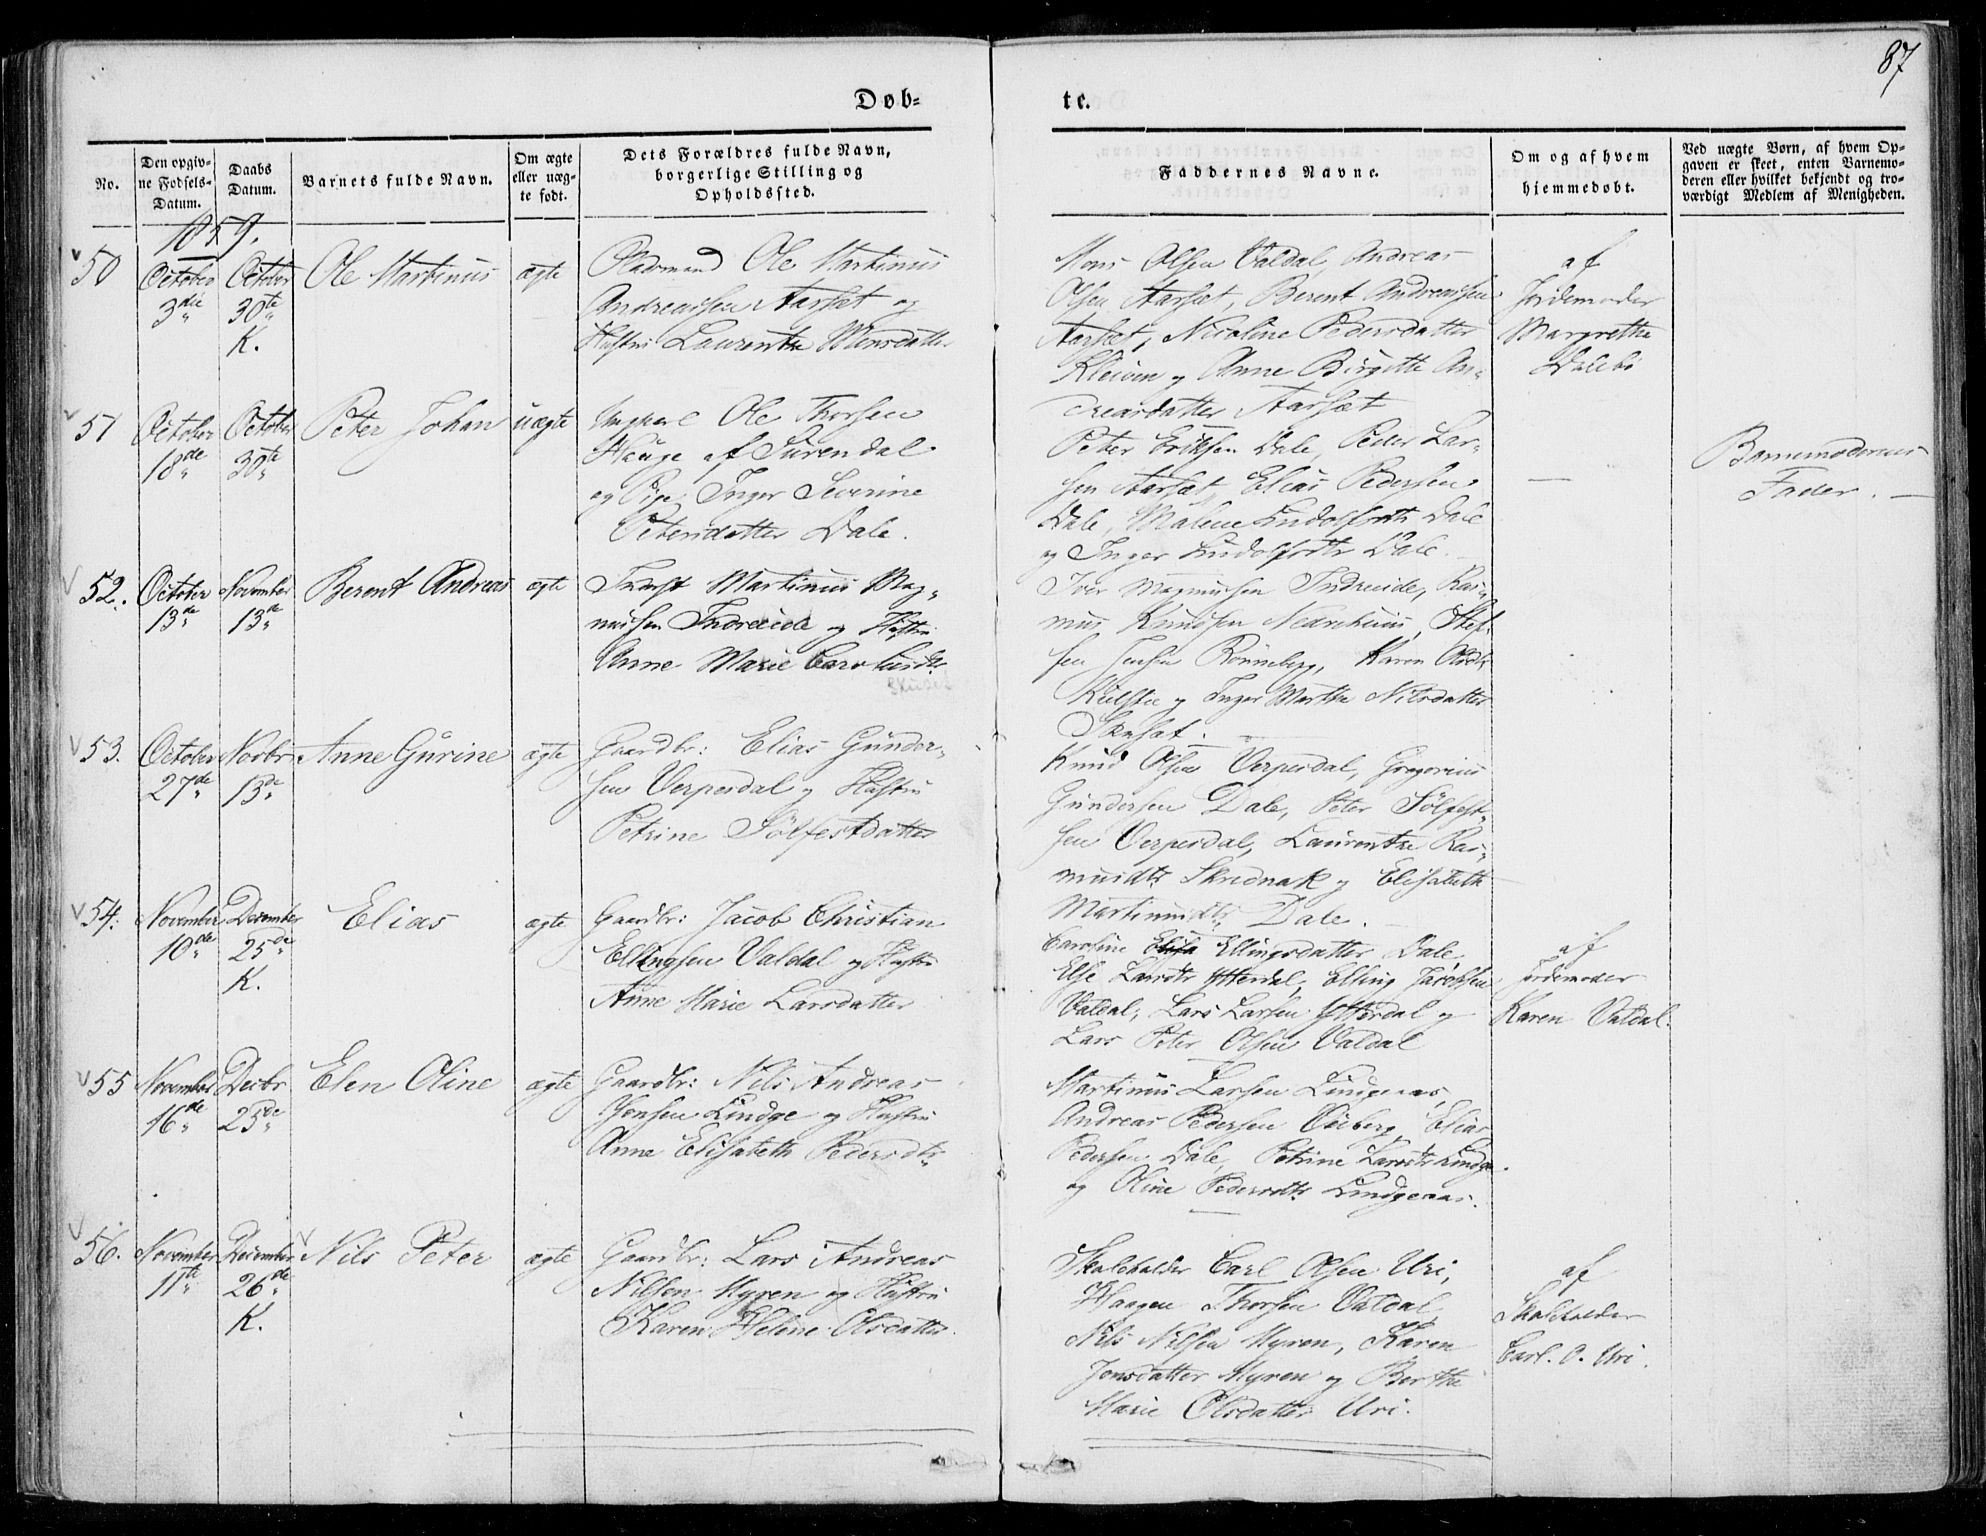 87
Døb-
te.
No.
Den opgiv-
ne Fødsels-
Datum.
Daabs
Datum.
Barnets fulde Navn.
Om ægte
eller uæg-
te født.
Dets Forældres fulde Navn,
borgerlige Stilling og
Opholdssted.
Faddernes Navne.
Om og af hvem
hjemmedøbt.
Ved uægte Børn, af hvem Op-
gaven er skeet, enten Barnemo-
deren eller hvilket bekjendt og tro-
værdigt Medlem af Menigheden.
1859.
50
October
3die
October
30te
K.
Ole Martinus
ægte
Pladsmand Ole Martinus
Andreassen Aarsæt og
Hustru Laurentze Monsdatter
Mons Olsen Valdal, Andreas
Olsen Aarsæt, Berent Andreassen
Aarsæt, Nicoline Pedersdatter
Kleiven og Anne Birgitte An-
dreasdatter Aarsæt
af
Jordemoder
Margrethe
Dalebø
51
October
18de
October
30te
Peter Johan
uægte
Ungkarl Ole Thorsen
Hauge af Surendal
og Pige Inger Severine
Petersdatter Dale.
Peter Eriksen Dale, Peder Lar-
sen Aarsæt, Elias Pedersen
Dale, Malene Ludolfsdtr Dale
og Inger Ludolfsdtr Dale.
Barnemoderens
Fader.
52.
October
13de
November
13de
Berent Andreas
ægte
Inderst Martinus Mag-
nussen Indreeide og Hustru
Anne Marie Carolusdtr
Iver Magnussen Indreeide, Ras-
mus Knudsen Nedrehuus, Stef-
fen Jensen Rønneberg, Karen Olsdtr
og Inger Marthe Nilsdatter
53.
October
27de
Novbr
13de
Anne Gurine
ægte
Gaardbr: Elias Gunder-
sen Verpesdal og Hustru
Petrine Sølfestdatter
Knud Olsen Verpesdal, Gregorius
Gundersen Dale, Peter Sølfest-
sen Verpesdal, Laurentze Ras-
musdtr Skrednak og Elisabeth
Martinusdtr Dale.
54.
November
10de
December
25de
K.
Elias
ægte
Gaardbr: Jacob Christian
Ellingsen Valdal og Hustru
Anne Marie Larsdatter
Caroline Ellingsdatter Dale,
Else Larsdtr Ytterdal, Elling Jacobsen
Valdal, Lars Larsen Ytterdal og
Lars Peter Olsen Valdal
af
Jordemoder
Karen Valdal.
55
November
16de
Decbr
25de
Elen Oline
ægte
Gaardbr: Nils Andreas
Jonsen Lindge og Hustru
Anne Elisabeth Pedersdtr
Martinus Larsen Lindgenes,
Andreas Pedersen Viiberg, Elias
Pedersen Dale, Petrine Larsdtr Lindge
og Oline Pedersdtr Lindgenes.
56.
November
11te
December
26de
K.
Nils Peter
ægte
Gaardbr: Lars Andreas
Nilsen Myren og Hustru
Karen Helene Olsdatter.
Skoleholder Carl Olsen Uri,
Haagen Thorsen Valdal,
Nils Nilsen Myren, Karen
Jonsdatter Myren og Berthe
Marie Olsdatter Uri.
af
Skoleholder
Carl. O. Uri.